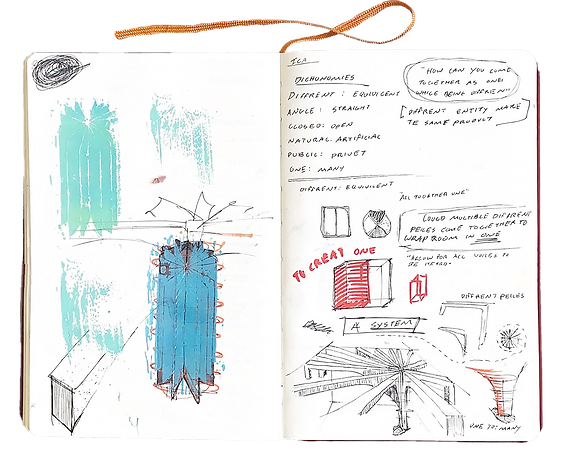 ICA
DICHONOMIES
DIFFERENT : EQUIVICENT
ANGLE : STRAIGHT
CLOSED: OPEN
NATURAL: ARTIFICIAL
PUBLIC: PRIVET
ONE: MANY
"HOW CAN YOU COME
TOGETHER AS ONE
WHILE BEING DIFFRENT"
[DIFFRENT ENTITY MAKE
TE SAME PRODUCT]
DIFFERENT: EQUIVICENT
"ALL TOGETHER ONE"
COULD MULTIPLE DIFFRENT
PEICES COME TOGETHER TO
WRAP ROOM IN ONE
"ALLOW FOR ALL VOICES TO
BE HEARD"
TO CREAT ONE
DIFFRENT PEICES
A SYSTEM
ONE TO: MANY